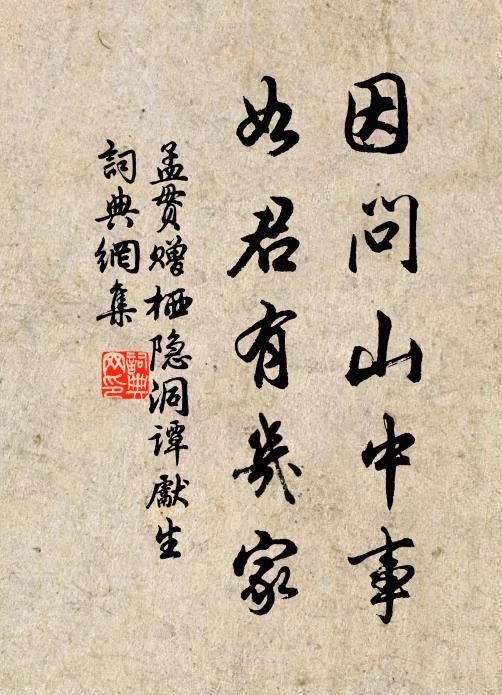 因問山中事
如君有幾家
孟贯贈栖隐洞谭獻生
詞典網集
詞典
网印